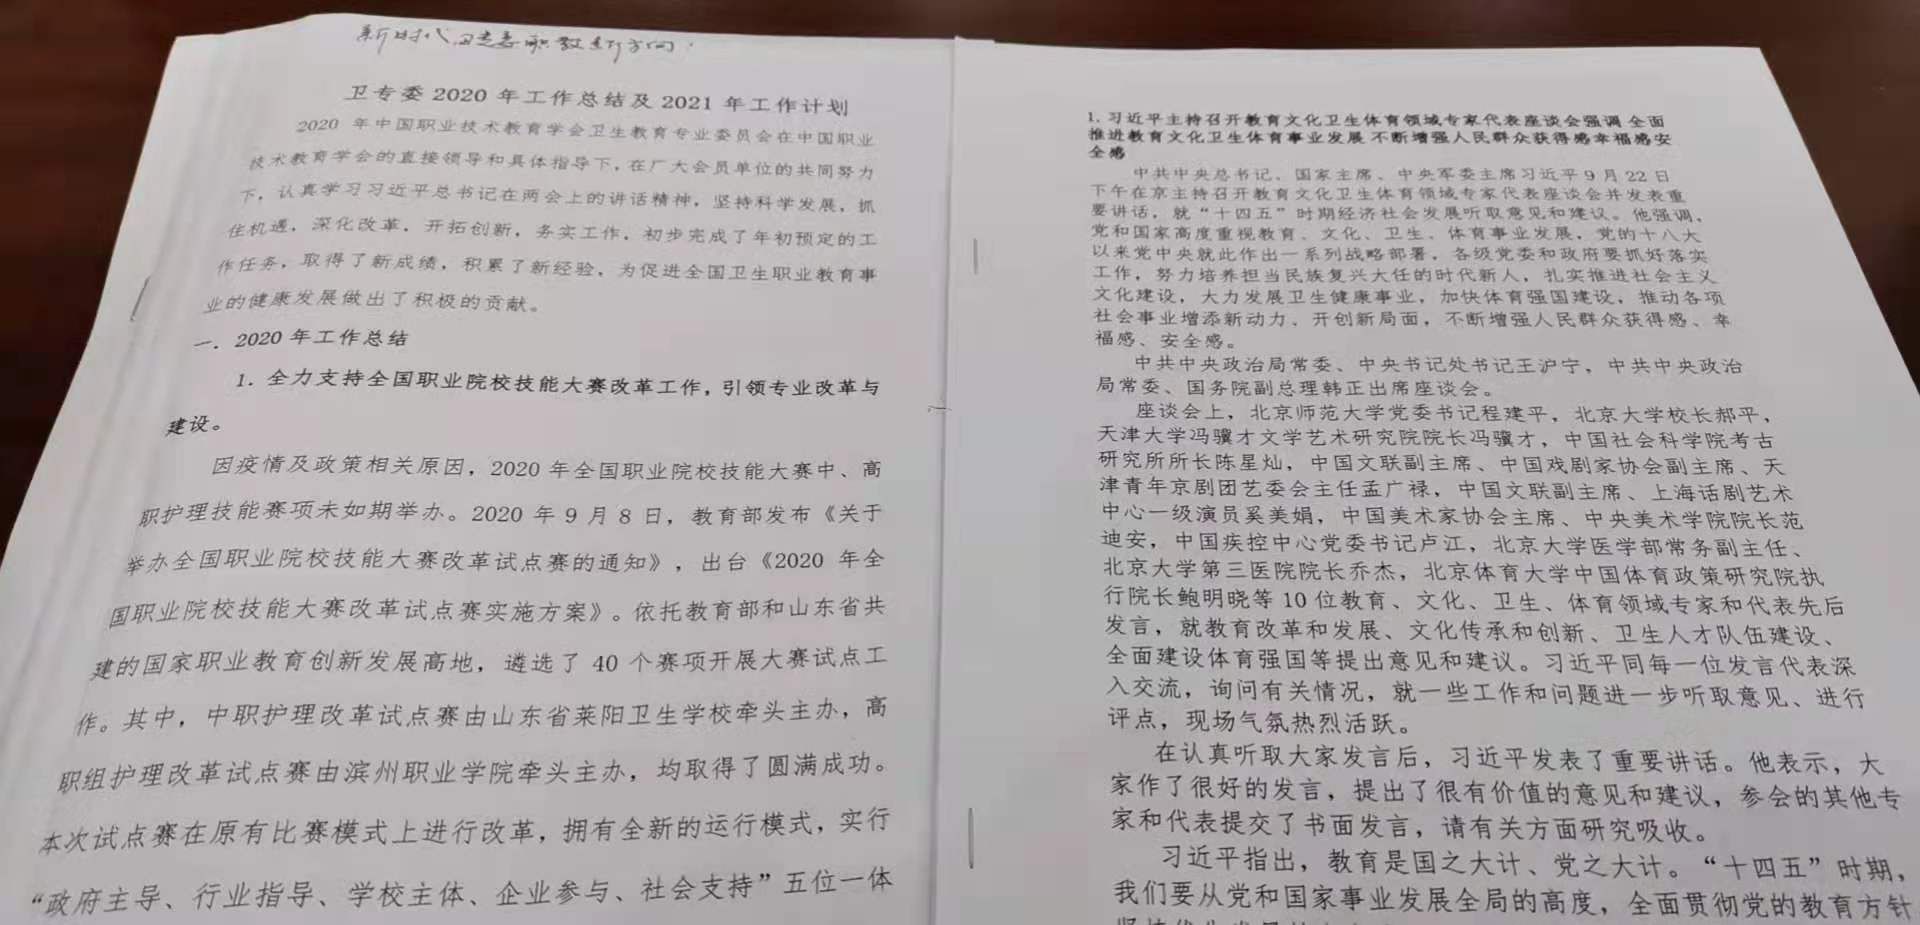 新时代卫
职教
方向
卫专委2020年工作总结及2021年工作计划
2020年中国职业技术教育学会卫生教育专业委员会在中国职业
技术教育学会的直接领导和具体指导下，在广大会员单位的共同努力
下，认真学习习近平总书记在两会上的讲话精神，坚持科学发展，抓
住机遇，深化改革，开拓创新，务实工作，初步完成了年初预定的工
作任务，取得了新成绩，积累了新经验，为促进全国卫生职业教育事
业的健康发展做出了积极的贡献。
一．2020年工作总结
1．全力支持全国职业院校技能大赛改革工作，引领专业改革与
建设。
因疫情及政策相关原因，2020年全国职业院校技能大赛中、高
职护理技能赛项未如期举办。2020年9月8日，教育部发布《关于
举办全国职业院校技能大赛改革试点赛的通知》，出台《2020年全
国职业院校技能大赛改革试点赛实施方案》。依托教育部和山东省共
建的国家职业教育创新发展高地，遴选了40个赛项开展大赛试点工
作。其中，中职护理改革试点赛由山东省莱阳卫生学校牵头主办，高
职组护理改革试点赛由滨州职业学院牵头主办，均取得了圆满成功。
本次试点赛在原有比赛模式上进行改革，拥有全新的运行模式，实行
“政府主导、行业指导、学校主体、企业参与、社会支持”五位一体
1.习近平主持召开教育文化卫生体育领域专家代表座谈会强调 全面
推进教育文化卫生体育事业发展 不断增强人民群众获得感幸福感安
全感
中共中央总书记、国家主席、中央军委主席习近平9月22日
下午在京主持召开教育文化卫生体育领域专家代表座谈会并发表重
要讲话，就“十四五”时期经济社会发展听取意见和建议。他强调，
党和国家高度重视教育、文化、卫生、体育事业发展，党的十八大
以来党中央就此作出一系列战略部署，各级党委和政府要抓好落实
工作，努力培养担当民族复兴大任的时代新人，扎实推进社会主义
文化建设，大力发展卫生健康事业，加快体育强国建设，推动各项
社会事业增添新动力、开创新局面，不断增强人民群众获得感、幸
福感、安全感。
中共中央政治局常委、中央书记处书记王沪宁，中共中央政治
局常委、国务院副总理韩正出席座谈会。
座谈会上，北京师范大学党委书记程建平，北京大学校长郝平，
天津大学冯骥才文学艺术研究院院长冯骥才，中国社会科学院考古
研究所所长陈星灿，中国文联副主席、中国戏剧家协会副主席、天
津青年京剧团艺委会主任孟广禄，中国文联副主席、上海话剧艺术
中心一级演员奚美娟，中国美术家协会主席、中央美术学院院长范
迪安，中国疾控中心党委书记卢江，北京大学医学部常务副主任、
北京大学第三医院院长乔杰，北京体育大学中国体育政策研究院执
行院长鲍明晓等10位教育、文化、卫生、体育领域专家和代表先后
发言，就教育改革和发展、文化传承和创新、卫生人才队伍建设、
全面建设体育强国等提出意见和建议。习近平同每一位发言代表深
入交流，询问有关情况，就一些工作和问题进一步听取意见、进行
评点，现场气氛热烈活跃。
在认真听取大家发言后，习近平发表了重要讲话。他表示，大
家作了很好的发言，提出了很有价值的意见和建议，参会的其他专
家和代表提交了书面发言，请有关方面研究吸收。
习近平指出，教育是国之大计、党之大计。“十四五”时期，
我们要从党和国家事业发展全局的高度，全面贯彻党的教育方针